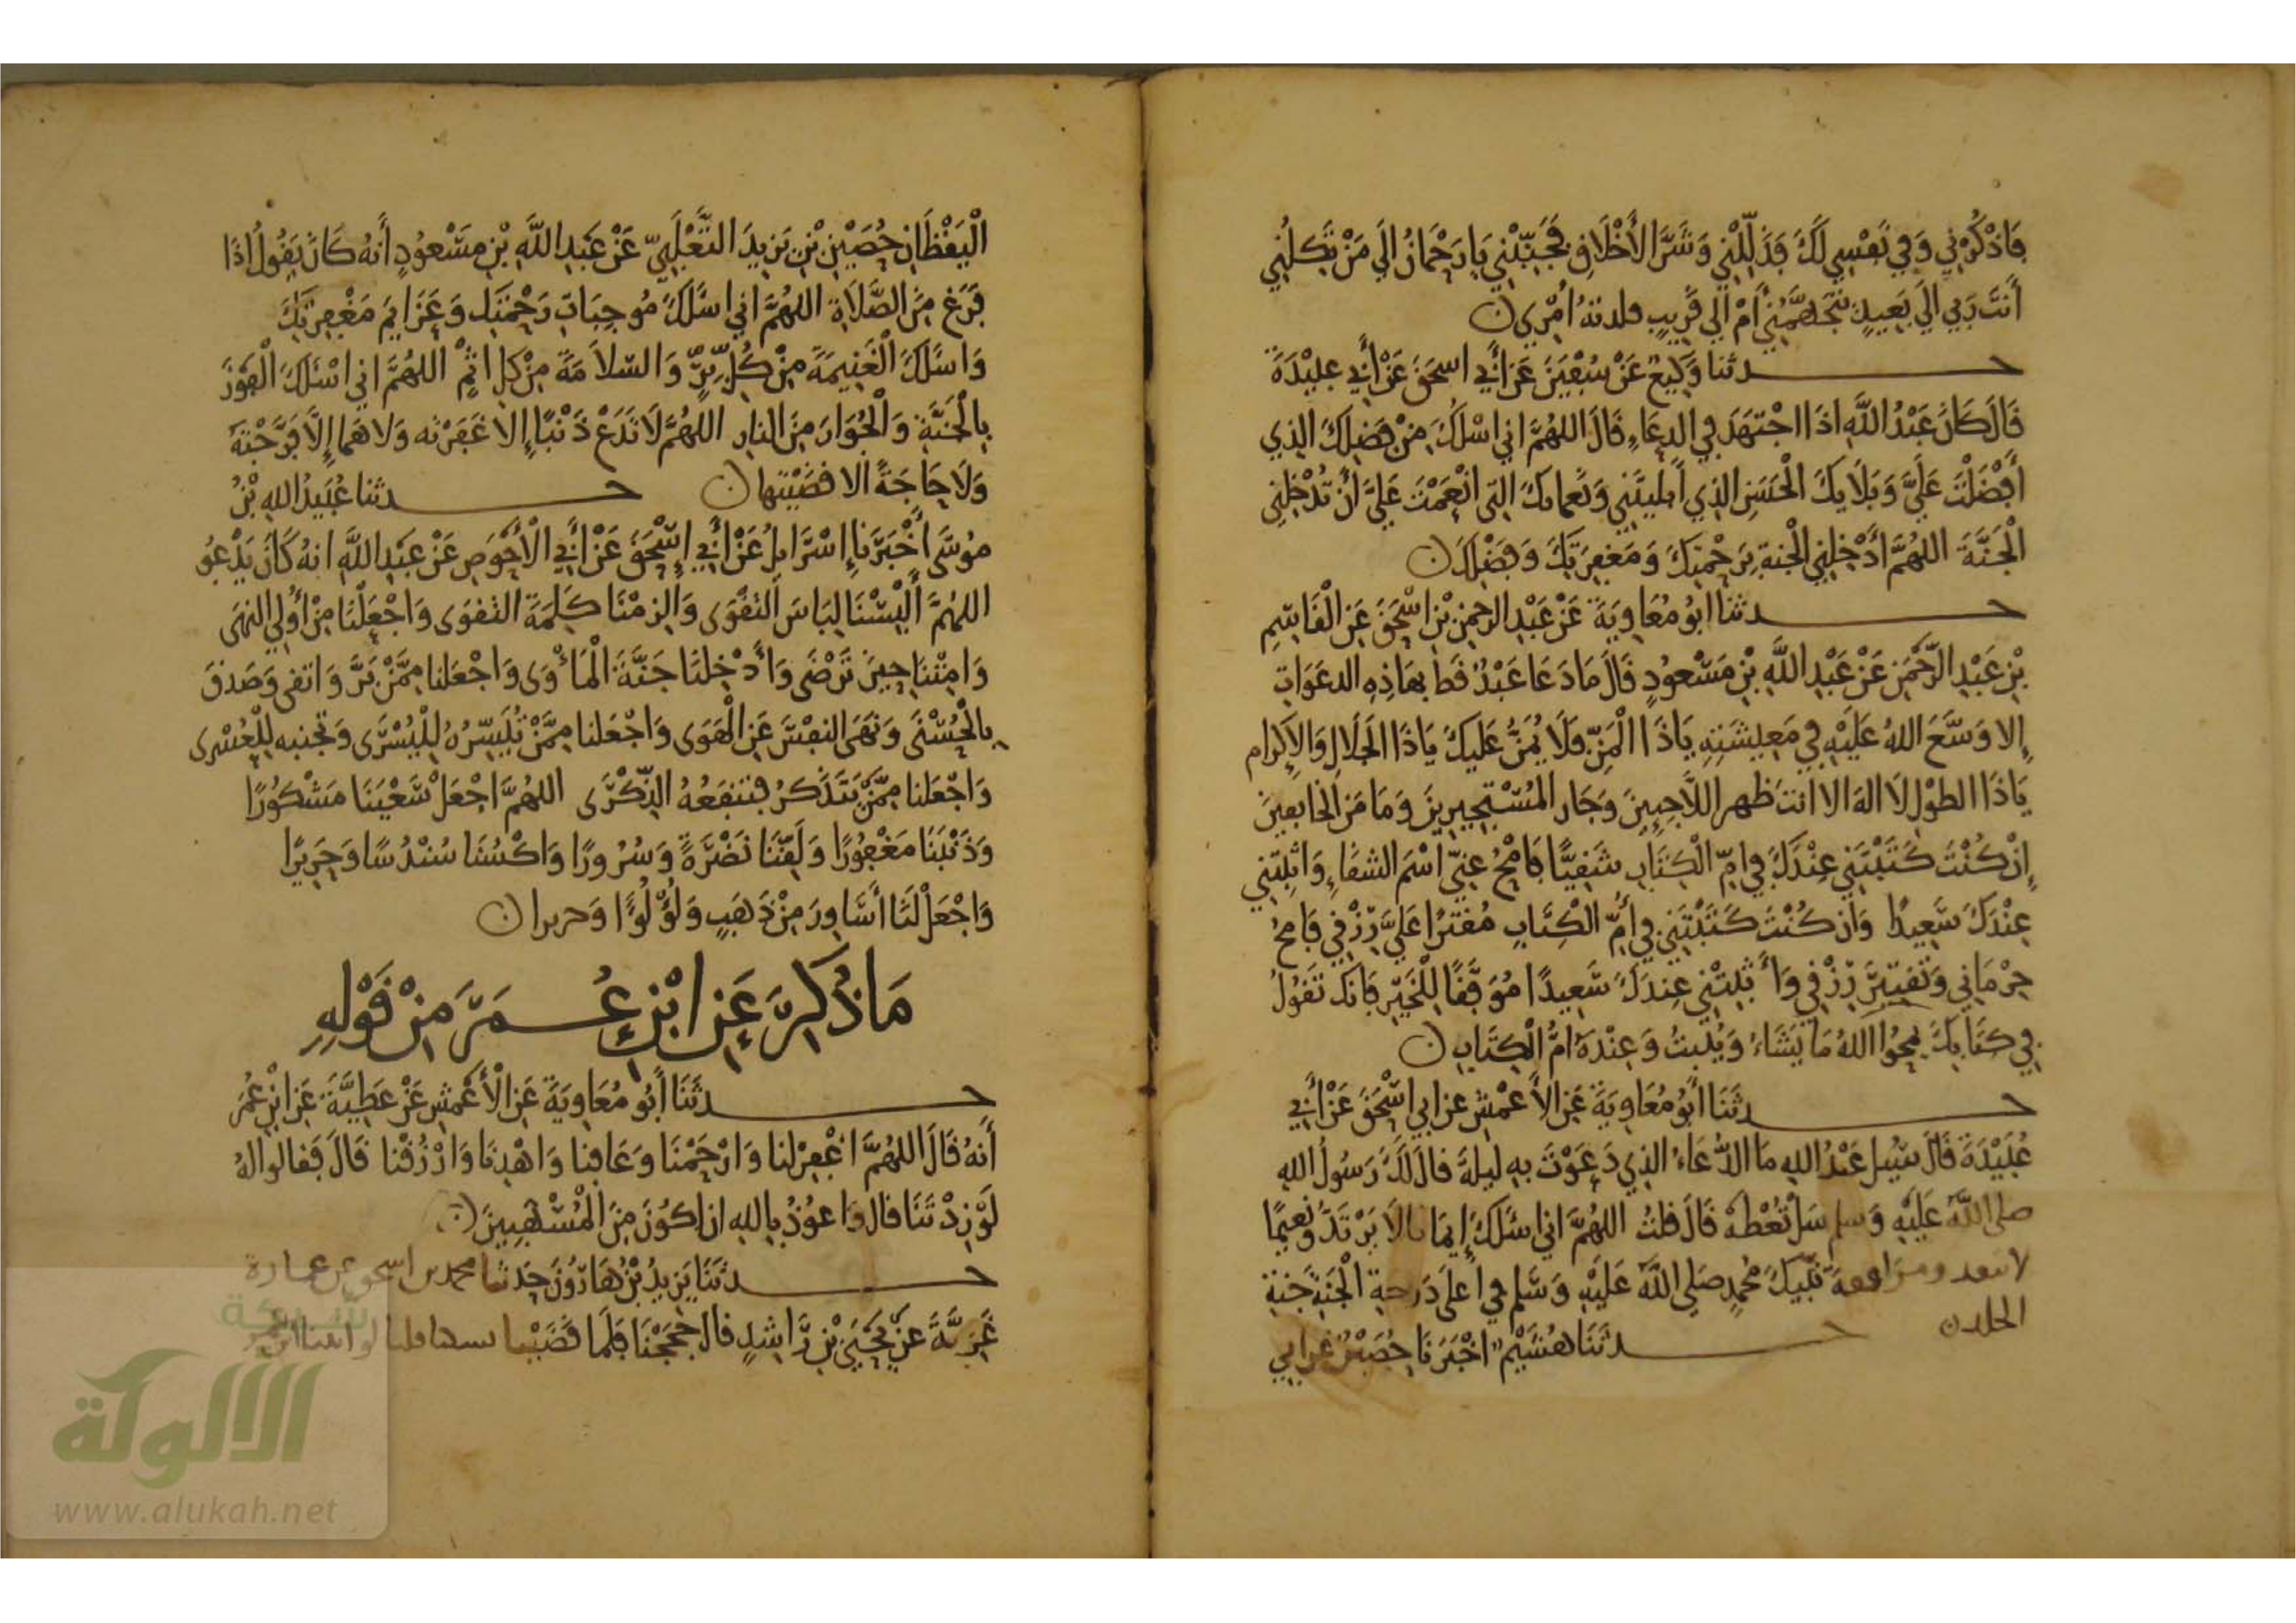 فَاذْكُرْنِي وَفِي نَفْسِي لَكَ فَذَلِّلْنِي وَشَرَّ الأَخْلَاقِ فَجَنِّبْنِي يَا رَحْمَانُ إلَي مَنْ تَكِلُنِي
أَنْتَ رَبِي الَي بَعِيدٍ يَتَجَهَّمُنِي أَمْ الي قَرِيبٍ ملدته أَمْرِي
حدثنا وَكِيعٌ عَنْ سُفْيَنَ عَنْ أَبِي اسحَقَ عَنْ أَبِي عبَيْدَةَ
قَالَ كَانَ عَبْدُ اللَّهِ اذَا اجْتَهَدَ فِي الدعَاءِ قَالَ اللهُمَّ اني اسْلُكَ مِنْ فضلِكَ الذِي
أَفْضَلْتَ عَلَيَّ وَبَلَايكَ الْحَسَنِ الذِي ابليتَنِي وَنَعماىكَ التِى انْعَمْتَ عَلَيَّ أنْ تُدْخِلنِي
الْجَنَّةَ اللهُمَّ أَدْخِلنِي الْجنةِ بِرَحْمتِكَ وَمَغفِرَتِكَ وَفَضْلِكَ
حدثنا ابُو مُعَاوِيَةَ عَنْ عَبْدِ الرحمنِ بْنِ اسْحَقَ عَنِ الْقَاسِمِ
بْنِ عَبْدِ الرَّحْمَنِ عَنْ عَبْدِ اللَّهِ بْنِ مَسْعودٍ قَالَ مَا دَعَا عَبْدٌ قَط بهَاذِهِ الدعَوَاتِ
إلا وَسَّعَ اللهُ عَلَيْهِ فِي مَعِيشَتِهِ يَاذَا الْمَنِّ فَلَا يُمَنُّ عَلَيكَ يَاذَا الجَلَالِ وَالإِكرَام
يَاذَا الطوْلِ لَا الهَ الا انتَ ظهر اللَّاجِينَ وَجَار المُسْتَجِيرِينَ وَمَامَن الخَابِفينَ
إنْ كُنْتَ كَتَبْتَنِي عِنْدَكَ فِي امِّ الْكِتَابِ شَقِيًّا فَامْحُ عَنِّي اسْمَ الشقَاءِ وَاثْبِتْنِي
عِنْدَكَ سَعِيدًا وَانْ كُنْتَ كَتَبْتَنِي فِي أُمِّ الْكِتَابِ مُقتَرًا عَلَيَّ رِزْقِي فَامحُ
حِرْمَانِي وَتَقتِيَر رِزْقِي وَأَثْبِتْنِي عِندَكَ سَعِيدًا مُوَفَّقًا لِلْخَيْرِ فَانكَ تَقُولُ
فِي كِتَابِكَ يَمحُوا اللهُ مَا يَشَاءُ وَيُثبِتُ وَعِنْدَهُ امُّ الْكِتَابِ
حدثَنَا أَبُو مُعَاوِيَةَ عَنِ الأَعْمشِ عن ابي اسْحَقَ عَنْ أَبِي
عُبَيْدَةَ قَالَ سُيل عَبْدُ اللهِ مَا الدُّعَاءُ الذِي دَعَوْتَ بهِ ليلةَ قالَ لَكَ رَسُولُ اللهِ
صلى اللَّهُ عَلَيْهِ وَسلم سَلْ تُعْطَهْ قَالَ قلتُ اللهُمَّ اني اسْئَلُكَ إِيمَانا لَا يَرْتَدُّ وَنَعِيمًا
لا ىنفد ومرافقة نَبِيكَ مُحمدٍ صَلى اللَّهُ عَلَيْهِ وَسَلم فِي اعلَى دَرَجةِ الْجَنَةِ جَنةِ
الخلد
حدثَنَا هُشَيْمٌ اخْبَرَنَا حُصَيْنٌ عن ابي
الْيَقْظَانِ حُصَيْنِ بْنِ يَزِيدَ الثَّعْلَبِيِّ عَنْ عَبدِ اللَّهِ بْنِ مسْعوُدٍ أَنهُ كَانَ يَقُولُ إذَا
فَرَغَ مِنَ الصَّلَاةِ اللهُمَّ اني اسْئَلكَ مُوجِبَاتِ رَحْمَتِكَ وَعَزَايمَ مَغْفِرَتِكَ
وَاسْئَلكَ الْغَنِيمَةَ مِنْ كُلِّ بِرٍّ وَالسلَامَةَ مِنْ كل اثْمٍ اللهُمَّ اني اسْئَلكَ الْفَوْزَ
بِالْجَنَّةِ وَالْجُوَارَ مِنَ النارِ اللهُمَّ لَا تَدَعْ ذَنْبًا إلا غَفَرْتَه وَلا هَما إلَّا فَرَّجْتَهُ
وَلَا حَاجَةً الا قضَيْتَها حدثنا عُبَيدُ اللهِ بْنُ
مُوسَى أَخْبَرَنَا إِسْرَايلُ عَنْ أَبِي إِسْحَقَ عَنْ أَبِي الْأَحْوَصِ عَنْ عَبدِ اللَّهِ انهُ كَانَ يَدْعُو
اللهُمَّ أَلْبِسْنَا لِبَاسَ التقْوَى وَالزِمْنَا كَلِمَةَ التقوَى وَاجْعَلْنَا مِنْ أُولِي النهَى
وَامِتْنَا حِينَ تَرْضَى وَأَدْخِلنَا جَنَّةَ الْمَأْوَى وَاجْعَلنا مِمَّنْ بَرَّ وَاتقى وَصَدقَ
بِالْحُسْنَى وَنَهَى النفسَ عَنِ الْهَوَى وَاجْعَلنا مِمَّنْ تُيَسِّرُهُ لِلْيُسْرَى وَتجنبه لِلْعُسْرى
وَاجْعَلنا مِمَّنْ يَتَذَكرُ فَتَنفَعُهُ الذِّكْرَى اللهُمَّ اجْعَلْ سَعْيَنَا مَشْكُوُرًا
وَذَنْبَنَا مَغْفُورًا وَلَقِّنَا نَضْرَةً وَسُرُورًا وَاكْسُنَا سُنْدُسًا وَحَرِيرًا
وَاجْعَلْ لَنَا أَسَاوِرَ مِنْ ذَهَبٍ وَلُؤْلُؤًا وَحريرا
مَا ذُكِرَ عَنِ ابْنِ عُمَرَ مِنْ قَوْلِهِ
حدثَنَا أَبُو مُعَاوِيَةَ عَنِ الْأَعْمشِ عَنْ عَطِيَّةَ عَنِ ابْنِ عُمَرَ
أَنهُ قَالَ اللهُمَّ اغْفِرْ لنا وَارْحَمْنَا وَعَافِنا وَاهْدِنَا وَارْزُقْنا قَالَ فَقالوا لهُ
لَوْ زِدْتَنَا قال وَاعوُذُ بِاللهِ ان اكُونَ مِنَ الْمُسْهِبِينَ
حدثَنَا يَزِيدُ بْنُ هَارُونَ حَدثنا محمد بن اسحق عن عمارة
غَزِيَّةَ عَنْ يَحْيَى بْنِ رَاشِدٍ قال حَجَجْنَا فَلَمَا قَضَيْنا نسكنا قلنا لو اتينا ابن عمر
شبكة
الألوكة
www.alukah.net